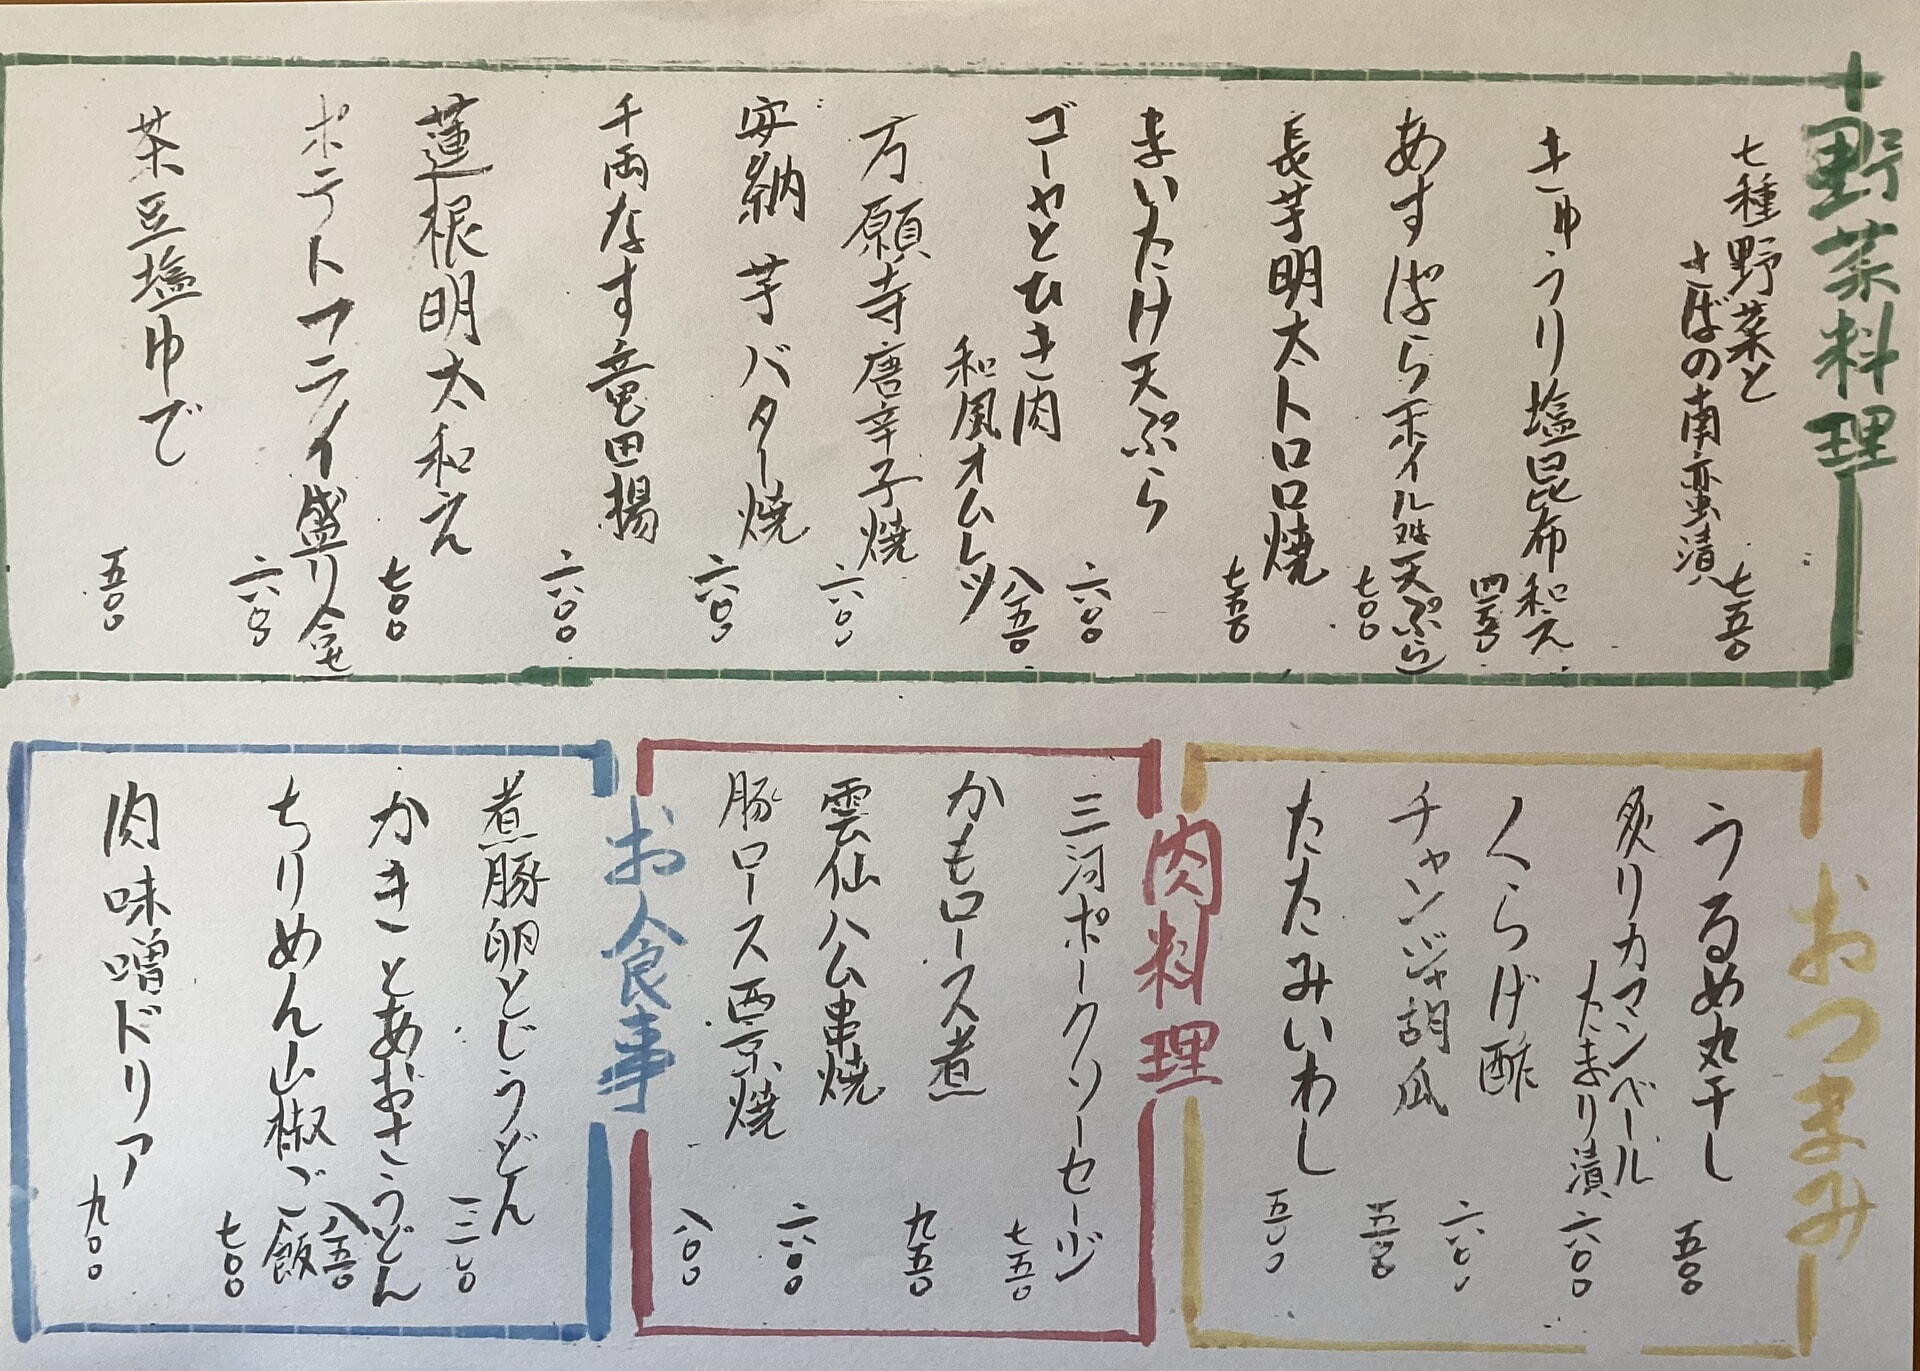 野菜料理
七種野菜と
さばの南蛮漬
七五〇
きゅうり塩昆布和え
四五〇
あすぱら(ボイル又は天ぷら)
七〇〇
長芋明太トロロ焼
七五〇
まいたけ天ぷら
六〇〇
ゴーヤとひき肉
和風オムレツ
八五〇
万願寺唐辛子焼
六〇〇
安納芋バター焼
六〇〇
千両なす竜田揚
六〇〇
蓮根明太和え
七〇〇
ポテトフライ盛り合せ
六〇〇
茶豆塩ゆで
五〇〇
おつまみ
うるめ丸干し
五〇〇
炙りカマンベール
たまり漬
六〇〇
くらげ酢
六〇〇
チャンジャ胡瓜
五五〇
たたみいわし
五〇〇
肉料理
三河ポークソーセージ
七五〇
かもロース煮
九五〇
雲仙ハム串焼
六〇〇
豚ロース西京焼
八〇〇
お食事
煮豚卵とじうどん
かきとあおさうどん
八五〇
ちりめん山椒ご飯
七〇〇
肉味噌ドリア
九〇〇